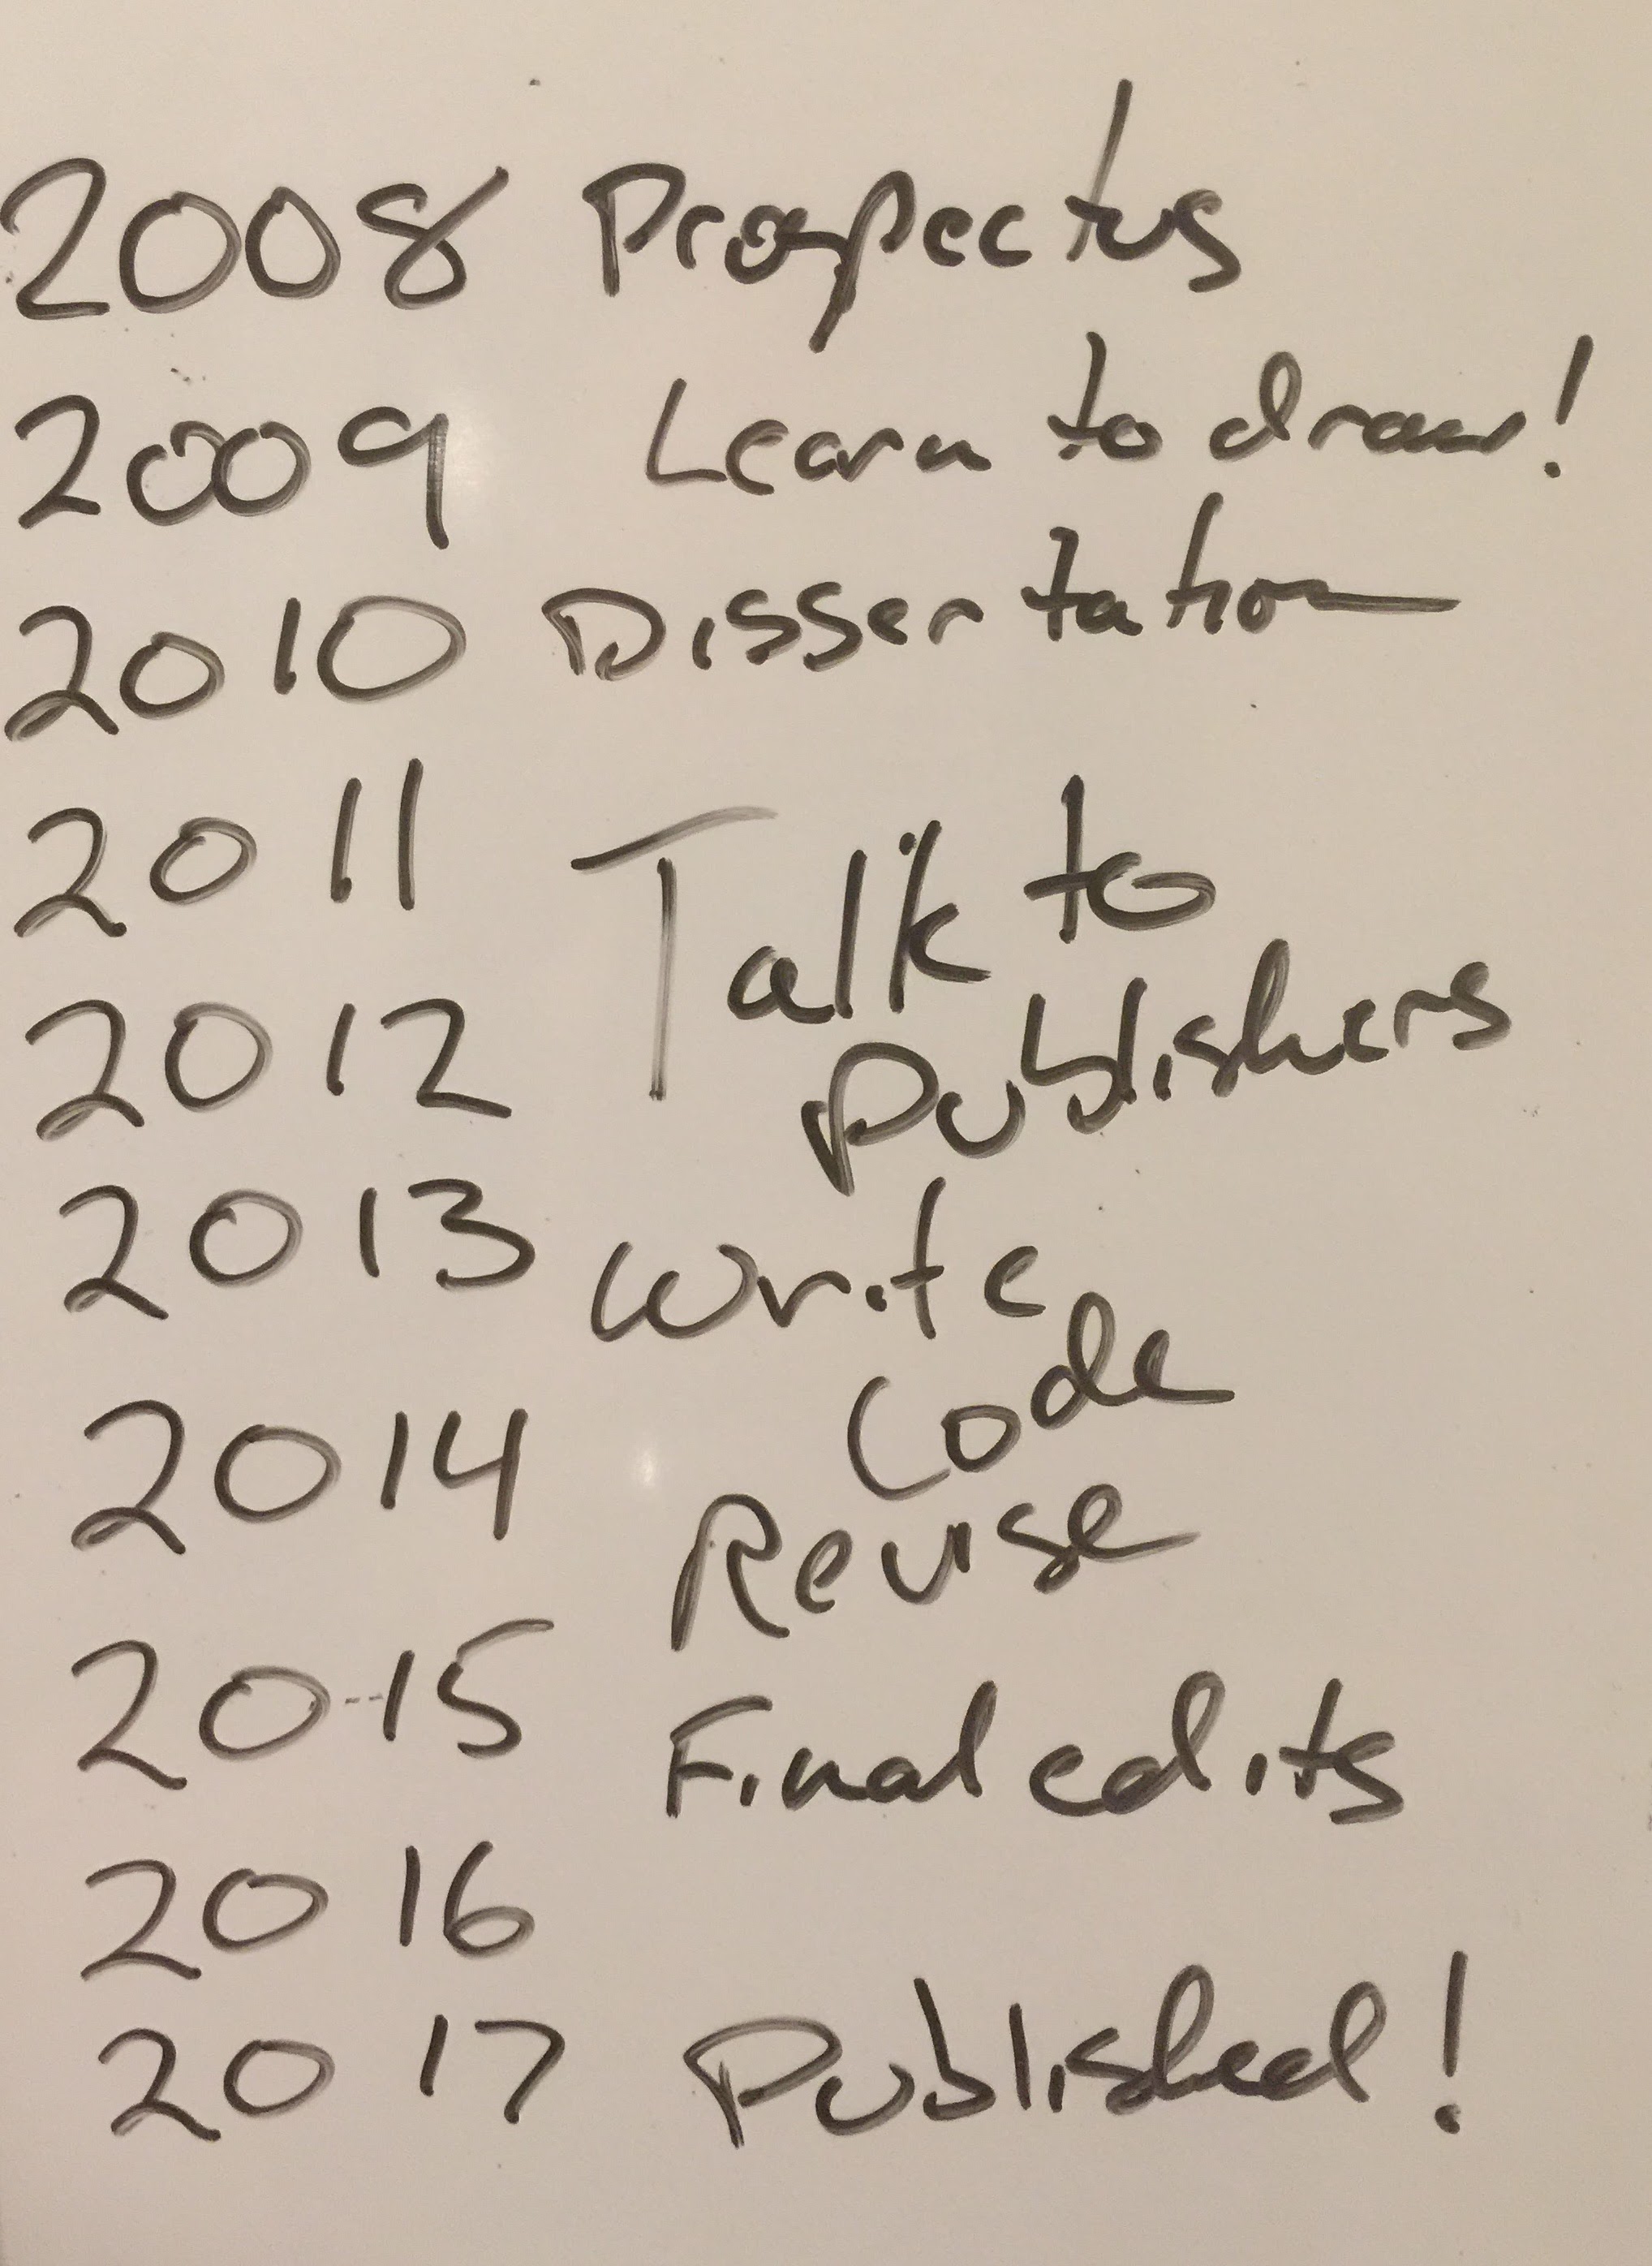 2008 Prospectus
2009 Learn to draw!
2010 Dissertation
2011 Talk to
2012 Publishers
2013 Write
Code
2014 Revise
2015 Final edits
2016
2017 Published!